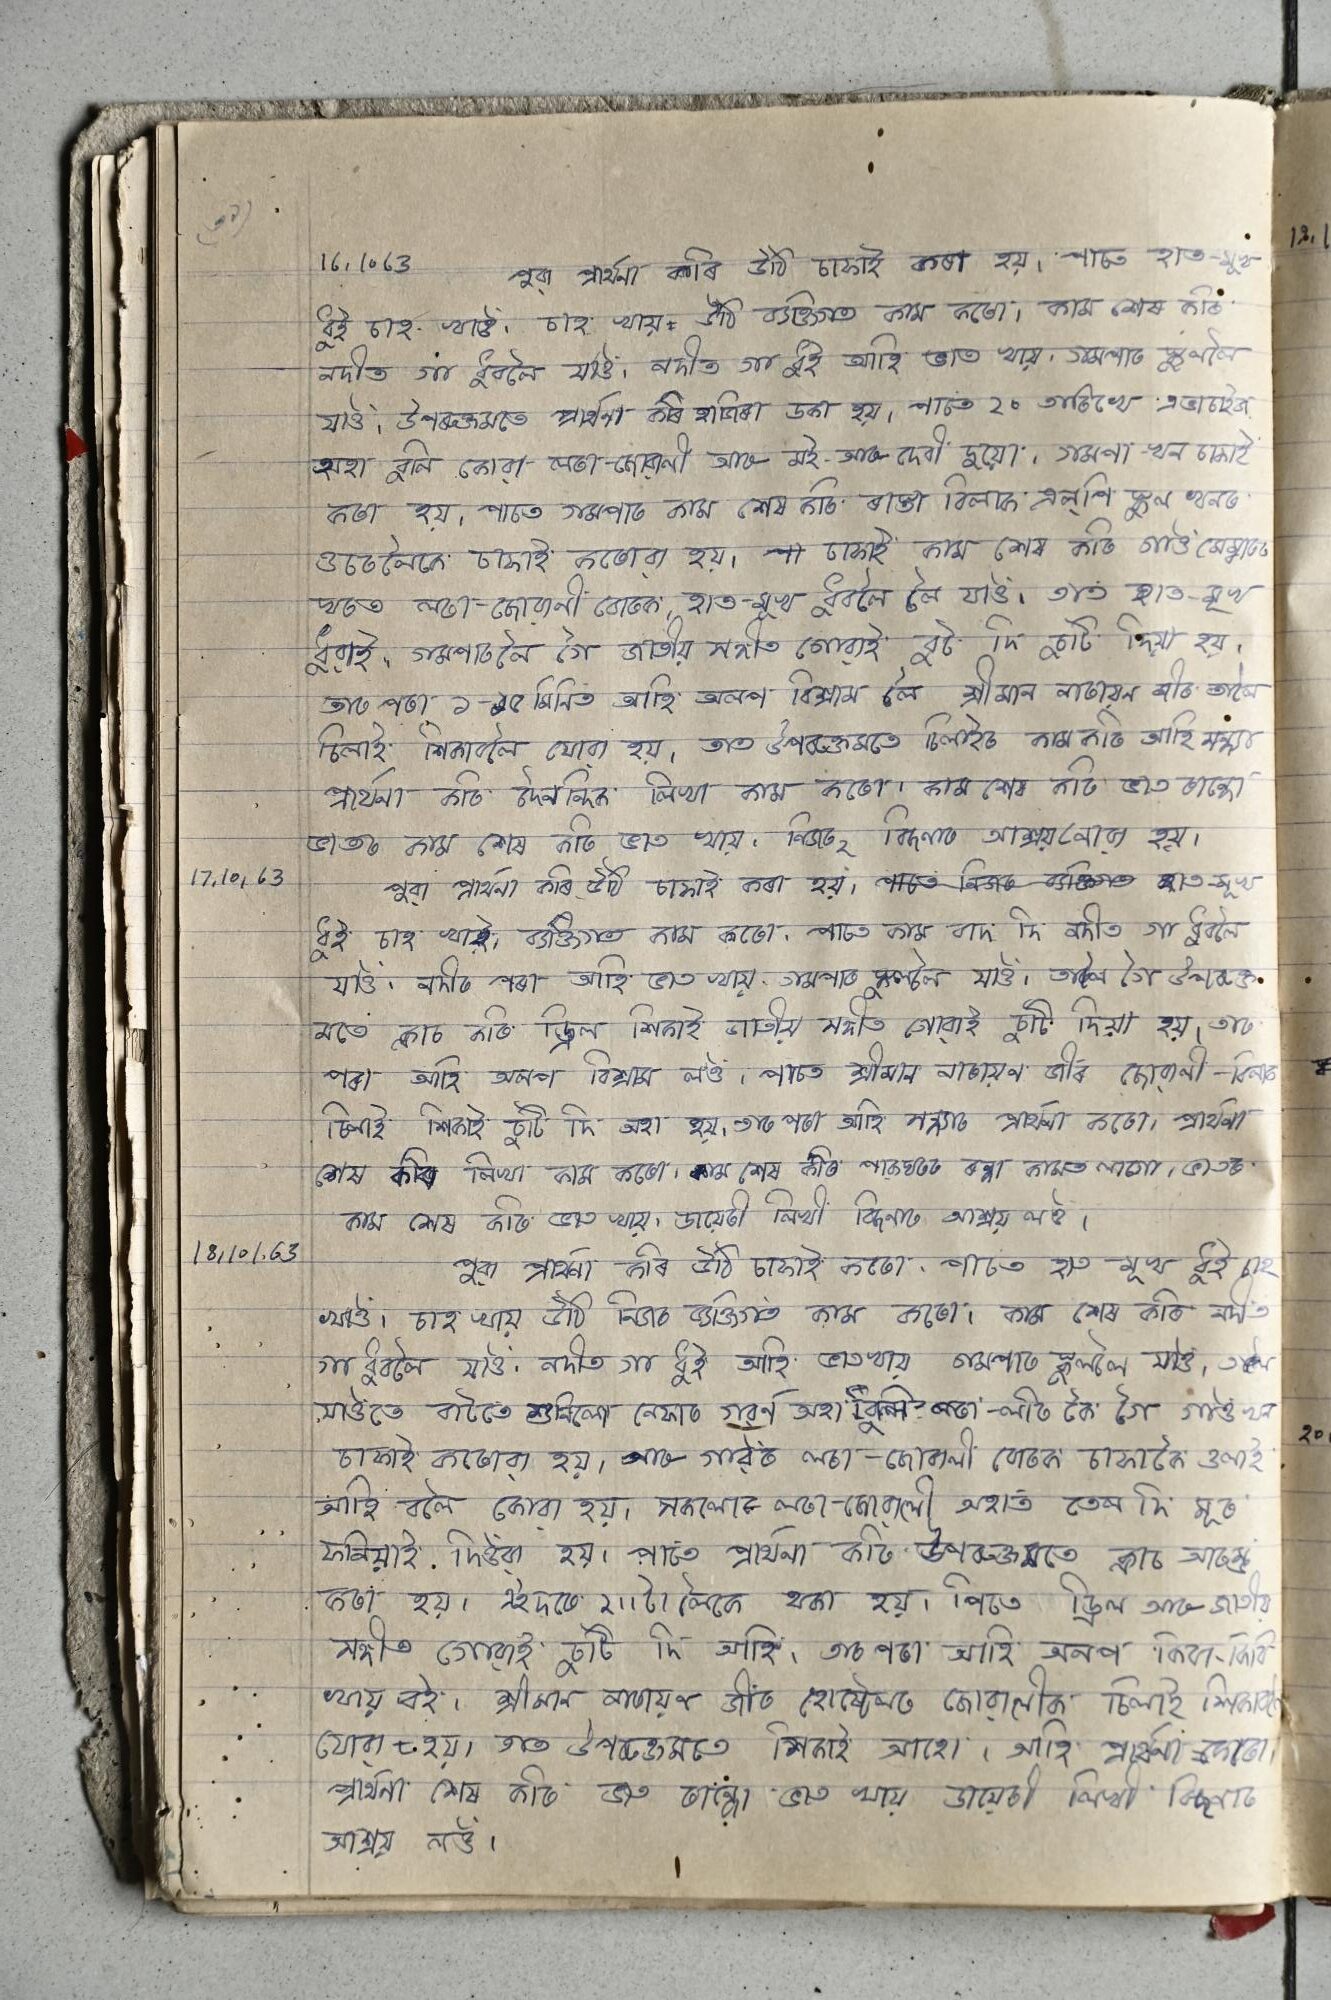 16.10.63 পুৱা প্ৰাৰ্থনা কৰি উঠি চাফাই কৰা হয়। পাচত হাত-মুখ
ধুই চাহ খাওঁ। চাহ খায় উঠি ব্যক্তিগত কাম কৰো। কাম শেষ কৰি
নদীত গা ধুবলৈ যাওঁ। নদীত গা ধুই আহি ভাত খায় গামপাত স্কুললৈ
যাওঁ। উপৰুক্তমতে প্ৰাৰ্থনা কৰি হাজিৰা ডকা হয়, পাচত ২০ তাৰিখে
অহা বুলি কোৱা লৰা-ছোৱালী আৰু মই আৰু দেৱী দুয়ো। চাফাই
কৰা হয়, পাচত গামপাত কাম শেষ কৰি ৰাস্তা বিলাক এল্‌পি স্কুল খনৰ
ওচৰলৈকে চাফাই কৰোৱা হয়। চাফাই কাম শেষ কৰি গাওঁ
ঘৰত লৰা-ছোৱালী বোৰক, হাত-মুখ ধুবলৈ লৈ যাওঁ। তাত হাত-মুখ
ধুৱাই, গামপাতলৈ গৈ জাতীয় সঙ্গীত গোৱাই বুট দি চুটি দিয়া হয়।
তাৰ পৰা ১-৪৫ মিনিত আহি অলপ বিশ্ৰাম লৈ শ্ৰীমান নাৰায়ন জীৰ তালৈ
চিলাই শিকাবলৈ যোৱা হয়, তাত উপৰুক্তমতে চিলাইৰ কাম কৰি আহি সন্ধ্যা
প্ৰাৰ্থনা কৰি দৈনন্দিক লিখা কাম কৰো। কাম শেষ কৰি ভাত ৰান্ধো
ভাতৰ কাম শেষ কৰি ভাত খায়, নিজৰ বিছনাত আশ্ৰয় লোৱা হয়।
17.10.63 পুৱা প্ৰাৰ্থনা কৰি উঠি চাফাই কৰা হয়, পাচত নিজৰ ব্যক্তিগত হাত-মুখ
ধুই চাহ খাই, ব্যক্তিগত কাম কৰো। পাচত কাম বাদ দি নদীত গা ধুবলৈ
যাওঁ। নদীৰ পৰা আহি ভাত খায় গামপাত স্কুললৈ যাওঁ। তালৈ গৈ উপৰুক্ত
মতে ক্লাচ কৰি ড্ৰিল শিকাই জাতীয় সঙ্গীত গোৱাই চুটি দিয়া হয়, তাৰ
পৰা আহি অলপ বিশ্ৰাম লওঁ। পাচত শ্ৰীমান নাৰায়ণ জীৰ ছোৱালী-বিলাক
চিলাই শিকাই চুটি দি অহা হয়, তাৰ পৰা আহি সন্ধ্যাত প্ৰাৰ্থনা কৰো। প্ৰাৰ্থনা
শেষ কৰি লিখা কাম কৰো। কাম শেষ কৰি পাকঘৰত ৰন্ধা কামত লাগো, ভাতৰ
কাম শেষ কৰি ভাত খায়, ডায়েৰী লিখী বিছনাত আশ্ৰয় লওঁ।
18.10.63 পুৱা প্ৰাৰ্থনা কৰি উঠি চাফাই কৰো। পাচত হাত-মুখ ধুই চাহ
খাওঁ। চাহ খায় উঠি নিজৰ ব্যক্তিগত কাম কৰো। কাম শেষ কৰি নদীত
গা ধুবলৈ যাওঁ। নদীত গা ধুই আহি ভাত খায় গামপাত স্কুললৈ যাওঁ, তালৈ
যাওঁতে বাটতে শুনিলো নেফাৰ গৱৰ্ণ অহা বুলি লৰা-লীত কৈ গৈ গাওঁ খন
চাফাই কৰোৱা হয়, আৰু গাৱঁৰ লৰা-ছোৱালী বোৰক চাফাকৈ ওলাই
আহি বলৈ কোৱা হয়। সকলোৰে লৰা-ছোৱালী অহাত তেল দি মূৰ
ফনিয়াই দিওঁৱা হয়। পাচত প্ৰাৰ্থনা কৰি উপৰুক্তমতে ক্লাচ আৰম্ভ
কৰা হয়। এইদৰে ২॥টা লৈকে থকা হয়। পিচত ড্ৰিল আৰু জাতীয়
সঙ্গীত গোৱাই চুটি দি আহি, তাৰ পৰা আহি অলপ কিবা-কিবি
খায় ৰই। শ্ৰীমান নাৰায়ণ জীৰ হোষ্টেলৰ ছোৱালীক চিলাই শিকাবলৈ
যোৱা হয়। তাত উপৰুক্তমতে শিকাই আহো। আহি প্ৰাৰ্থনা কৰো।
প্ৰাৰ্থনা শেষ কৰি ভাত ৰান্ধো ভাত খায় ডায়েৰী লিখী বিছনাত
আশ্ৰয় লওঁ।